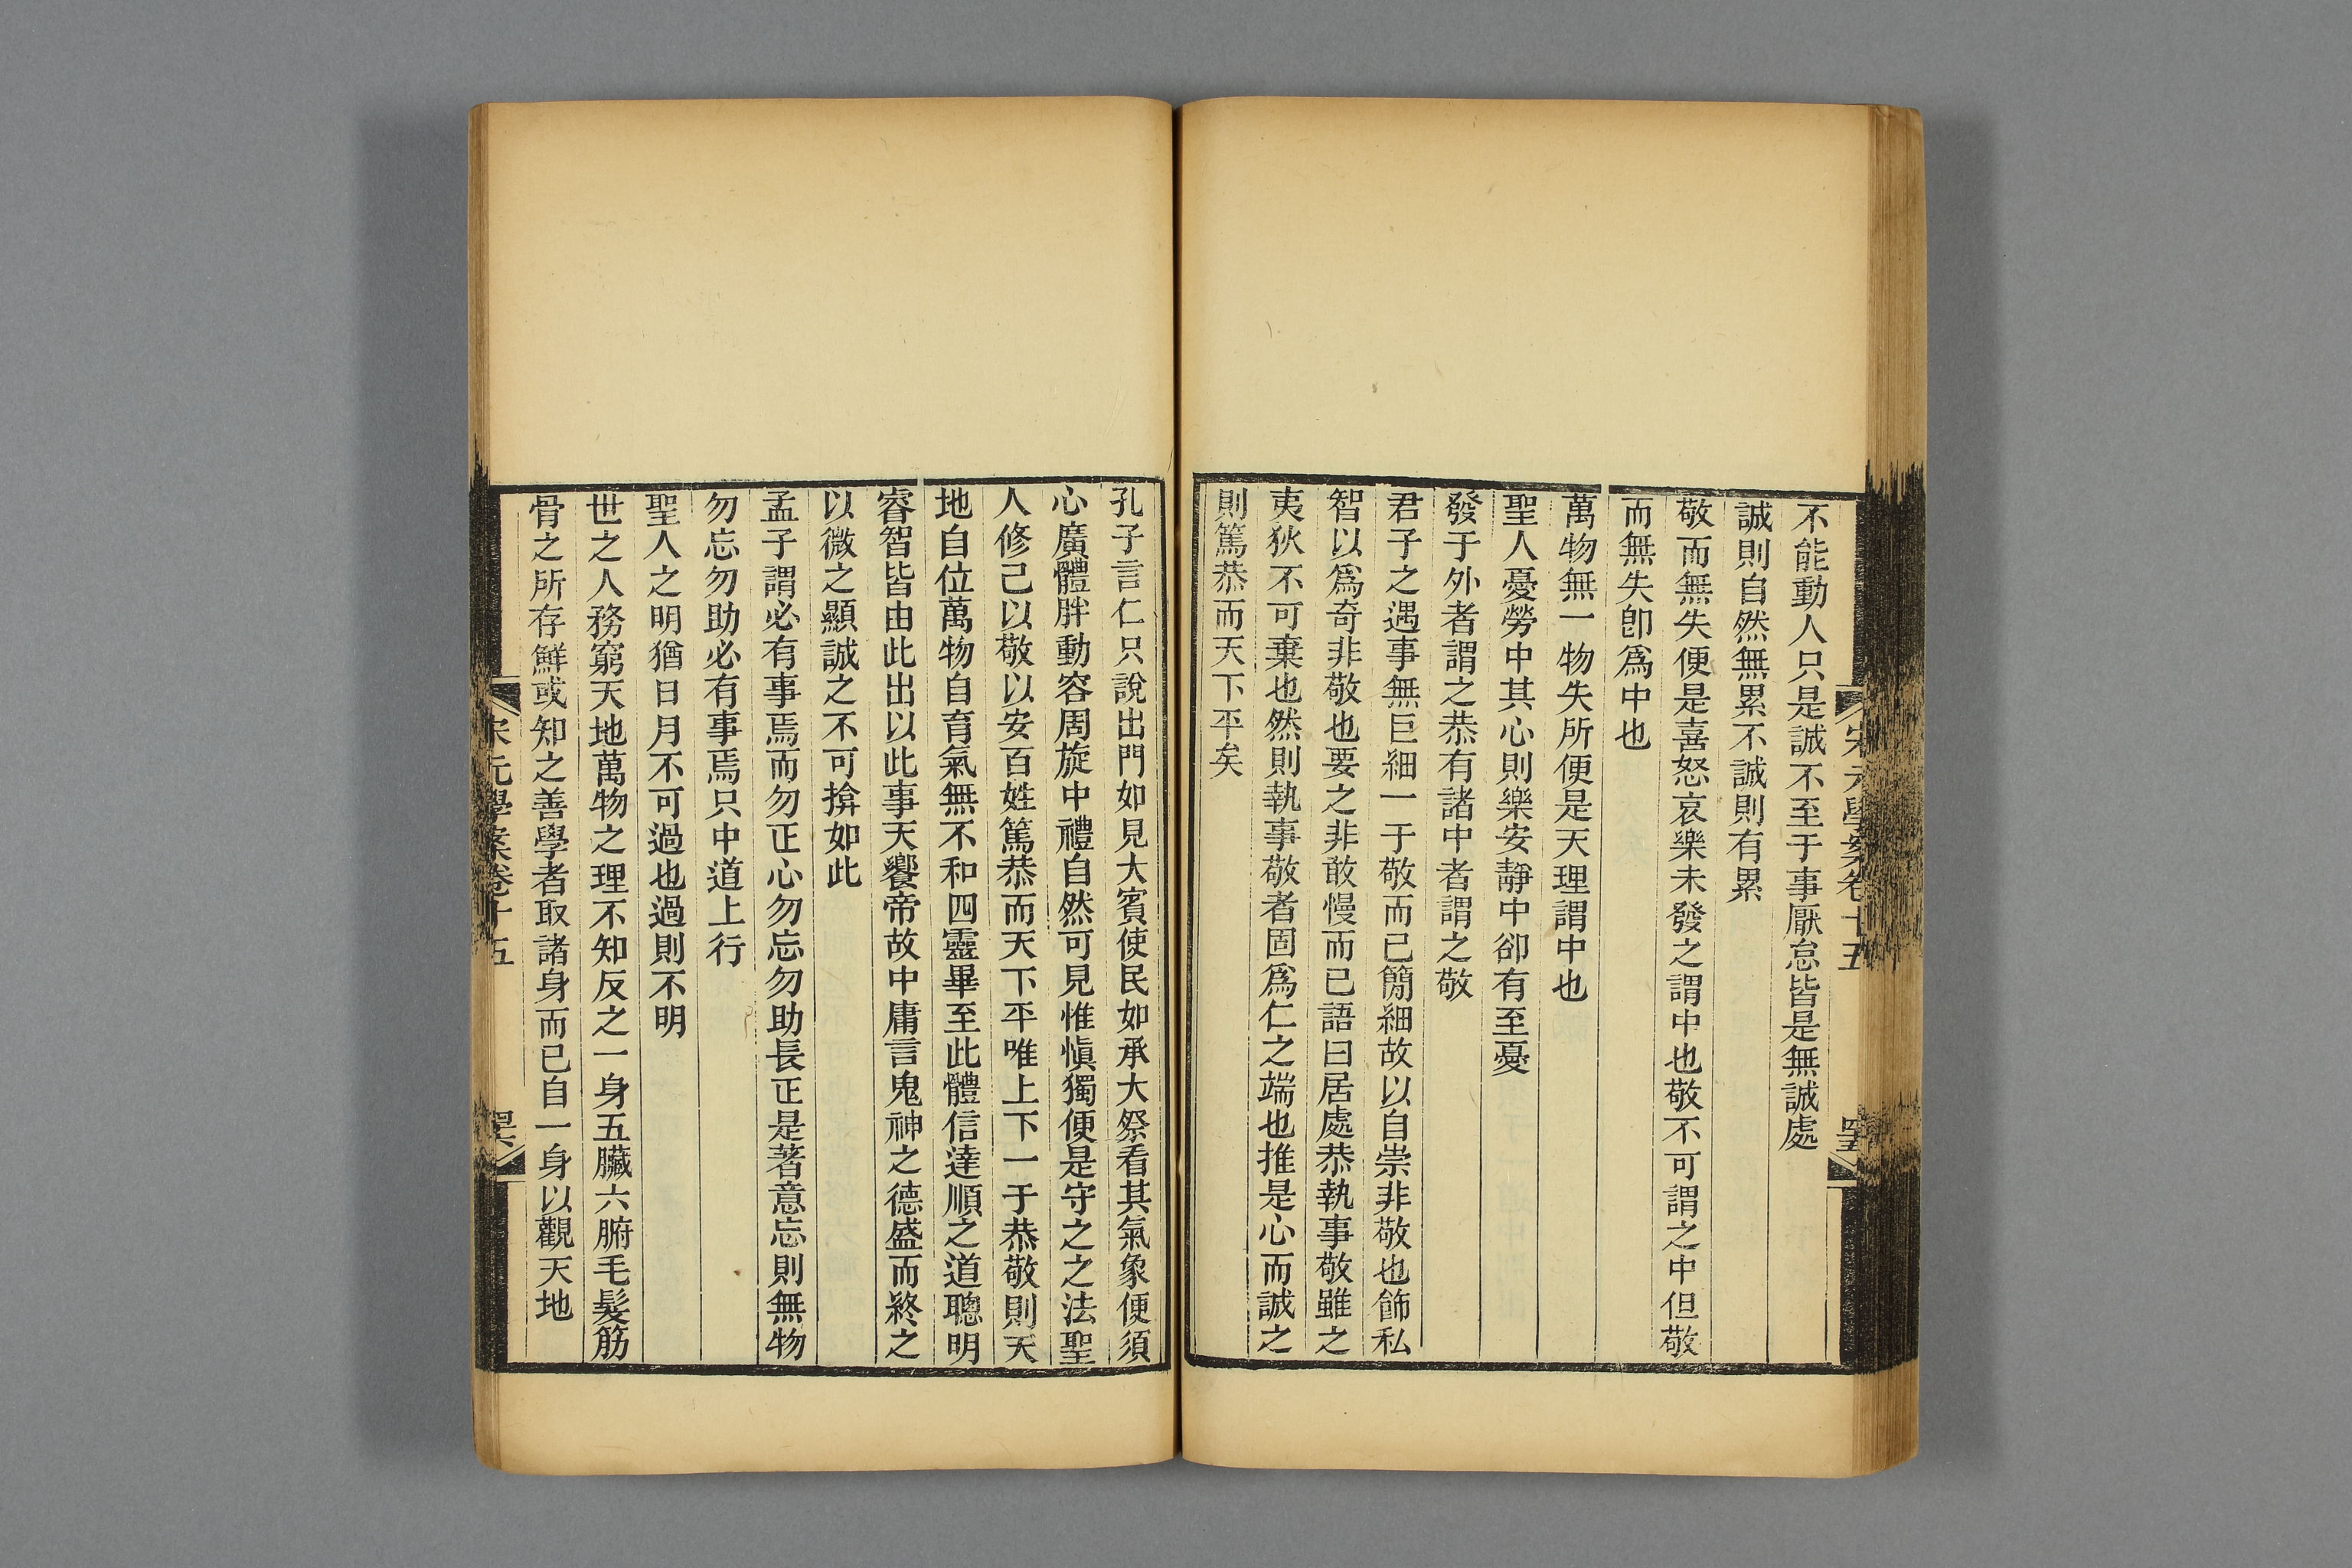 宋元學案卷十五
不能動人只是誠不至于事厭怠皆是無誠處
誠則自然無累不誠則有累
敬而無失便是喜怒哀樂未發之謂中也敬不可謂之中但敬
而無失卽爲中也
萬物無一物失所便是天理謂中也
聖人憂勞中其心則樂安靜中卻有至憂
發于外者謂之恭有諸中者謂之敬
君子之遇事無巨細一于敬而已簡細故以自崇非敬也飾私
智以爲奇非敬也要之非敢慢而已語曰居處恭執事敬雖之
夷狄不可棄也然則執事敬者固爲仁之端也推是心而誠之
則篤恭而天下平矣
孔子言仁只說出門如見大賓使民如承大祭看其氣象便須
心廣體胖動容周旋中禮自然可見惟愼獨便是守之之法聖
人修己以敬以安百姓篤恭而天下平唯上下一于恭敬則天
地自位萬物自育氣無不和四靈畢至此體信達順之道聰明
睿智皆由此出以此事天饗帝故中庸言鬼神之德盛而終之
以微之顯誠之不可揜如此
孟子謂必有事焉而勿正心勿忘勿助長正是著意忘則無物
勿忘勿助必有事焉只中道上行
聖人之明猶日月不可過也過則不明
世之人務窮天地萬物之理不知反之一身五臟六腑毛髮筋
骨之所存鮮或知之善學者取諸身而已自一身以觀天地
宋元學案卷十五